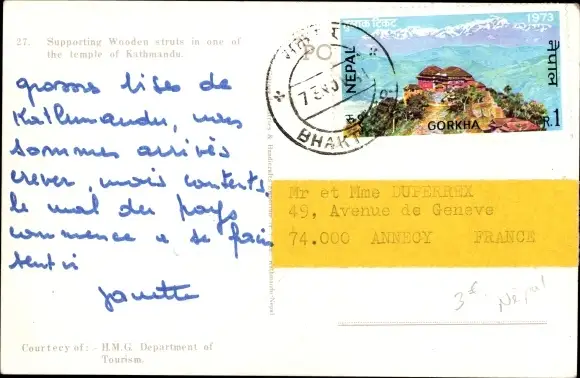 27. Supporting Wooden struts in one of
the temple of Kathmandu.
grosses bises de
Kathmandu, nous
sommes arrivés
crever, mais contents.
le mal du pays
commence a se faire
sentir
Janette
Courtesy of:- H.M.G. Department of
Tourism.
1973
NEPAL
नेपाल
GORKHA
R.1
BHAK
Mr et Mme DUPERREX
49, Avenue de Geneve
74.000 ANNECY FRANCE
3€
Népal